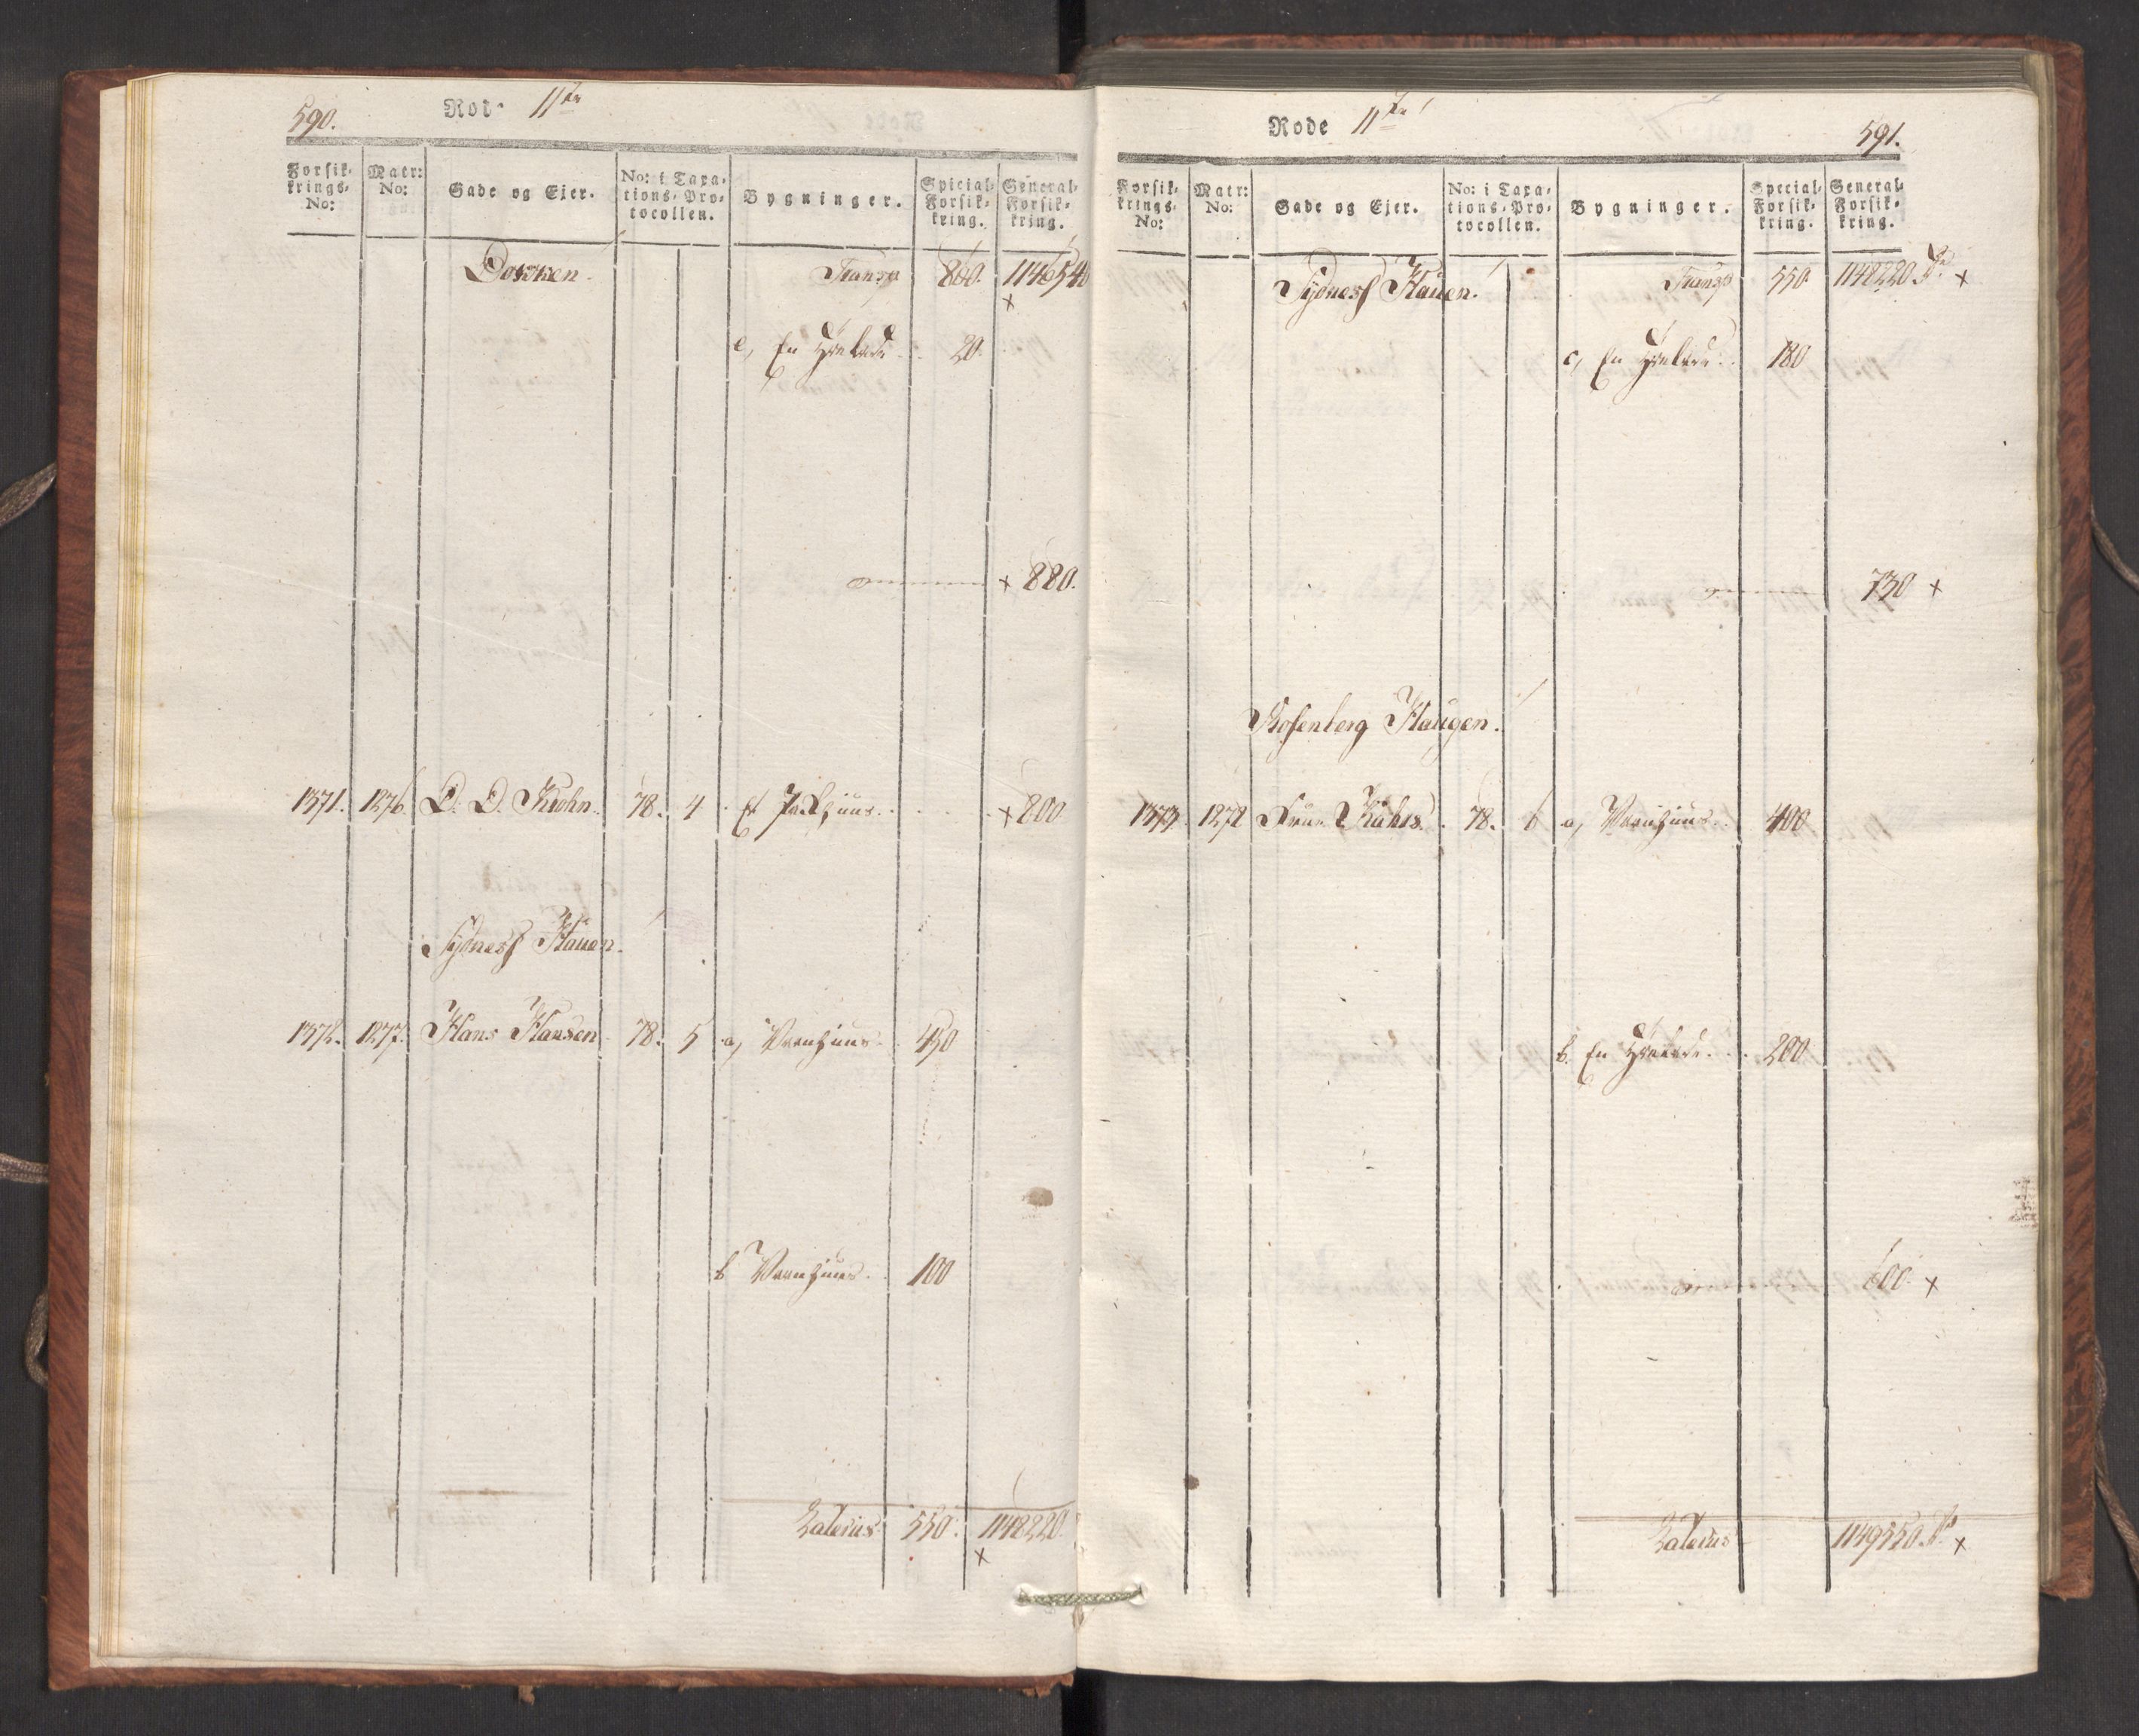 590.
Rode 11te
Forsik-
krings-
No:
Matr:
No:
Gade og Ejer.
No: i Taxa-
tions-Pro-
tocollen.
Bygninger.
Spicial-
Forsik-
kring.
General-
Forsik-
kring.
Dokken. Transp 860. 1146540
x
e, En 20.
x 880.
1371. 1276 D. D. Krohn. 78. 4 Et Pakhuus. x 800
Sydness Hauen.
1372. 1277. Hans Hansen 78. 5 a, Vaanhuus. 450
b Vaanhuus. 100
Laterus 550. 1148220.
x
Rode 11te
591.
Forsik-
krings-
No:
Matr:
No:
Gade og Ejer.
No: i Taxa-
tions-Pro-
tocollen.
Bygninger.
Special-
Forsik-
kring.
General-
Forsik-
kring.
Sydness Hauen. Transp 550 1148220 x
c, En 180
730 x
Rosenberg Haugen.
1373. 1278 78. 6 a, Vaanhuus. 400
b. En 200
600. x
Laterus 1149550. x